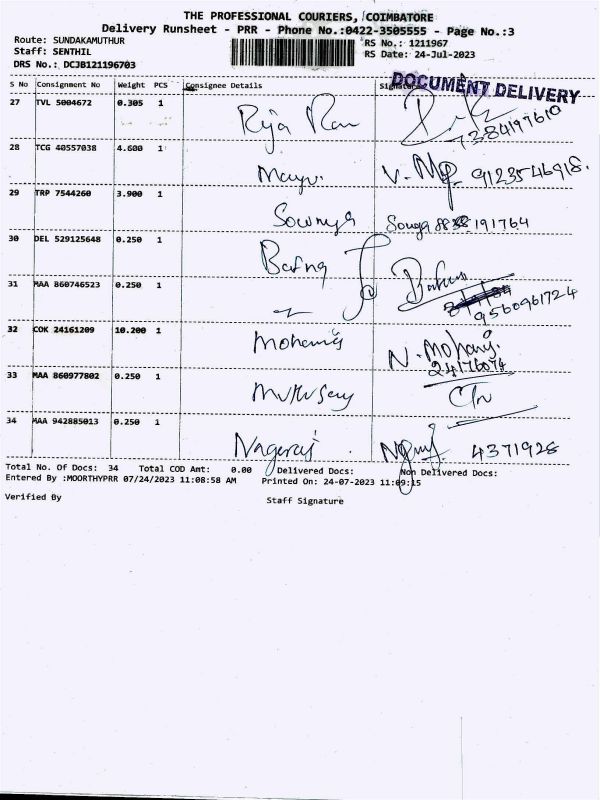 THE PROFESSIONAL COURIERS, COIMBATORE
Delivery Runsheet - PRR - Phone No.:0422-3505555 - Page No.:3
Route: SUNDAKAMUTHUR RS No.: 1211967
Staff: SENTHIL RS Date: 24-Jul-2023
DRS No.: DCJB121196703
DOCUMENT DELIVERY
S No Consignment No Weight PCS Consignee Details Signature
27 TVL 5004672 0.305 1
7384197610
28 TCG 40557038 4.600 1 9123546918.
29 TRP 7544260 3.900 1 Sowmya
30 DEL 529125648 0.250 1 Bafna
31 MAA 860746523 0.250 1
9560961724
32 COK 24161209 10.200 1 N. Mohanj.
24176074
33 MAA 860977802 0.250 1
34 MAA 942885013 0.250 1 Nagaraj 4371928
Total No. Of Docs: 34 Total COD Amt: 0.00 Delivered Docs: Non Delivered Docs:
Entered By :MOORTHYPRR 07/24/2023 11:08:58 AM Printed On: 24-07-2023 11:09:15
Verified By Staff Signature